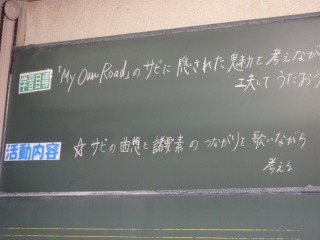 学習目標
「My Own Road」のサビに隠された魅力を考えなが
工夫してうたおう
活動内容
☆サビの曲想と諸要素のつながりを歌いながら
考える